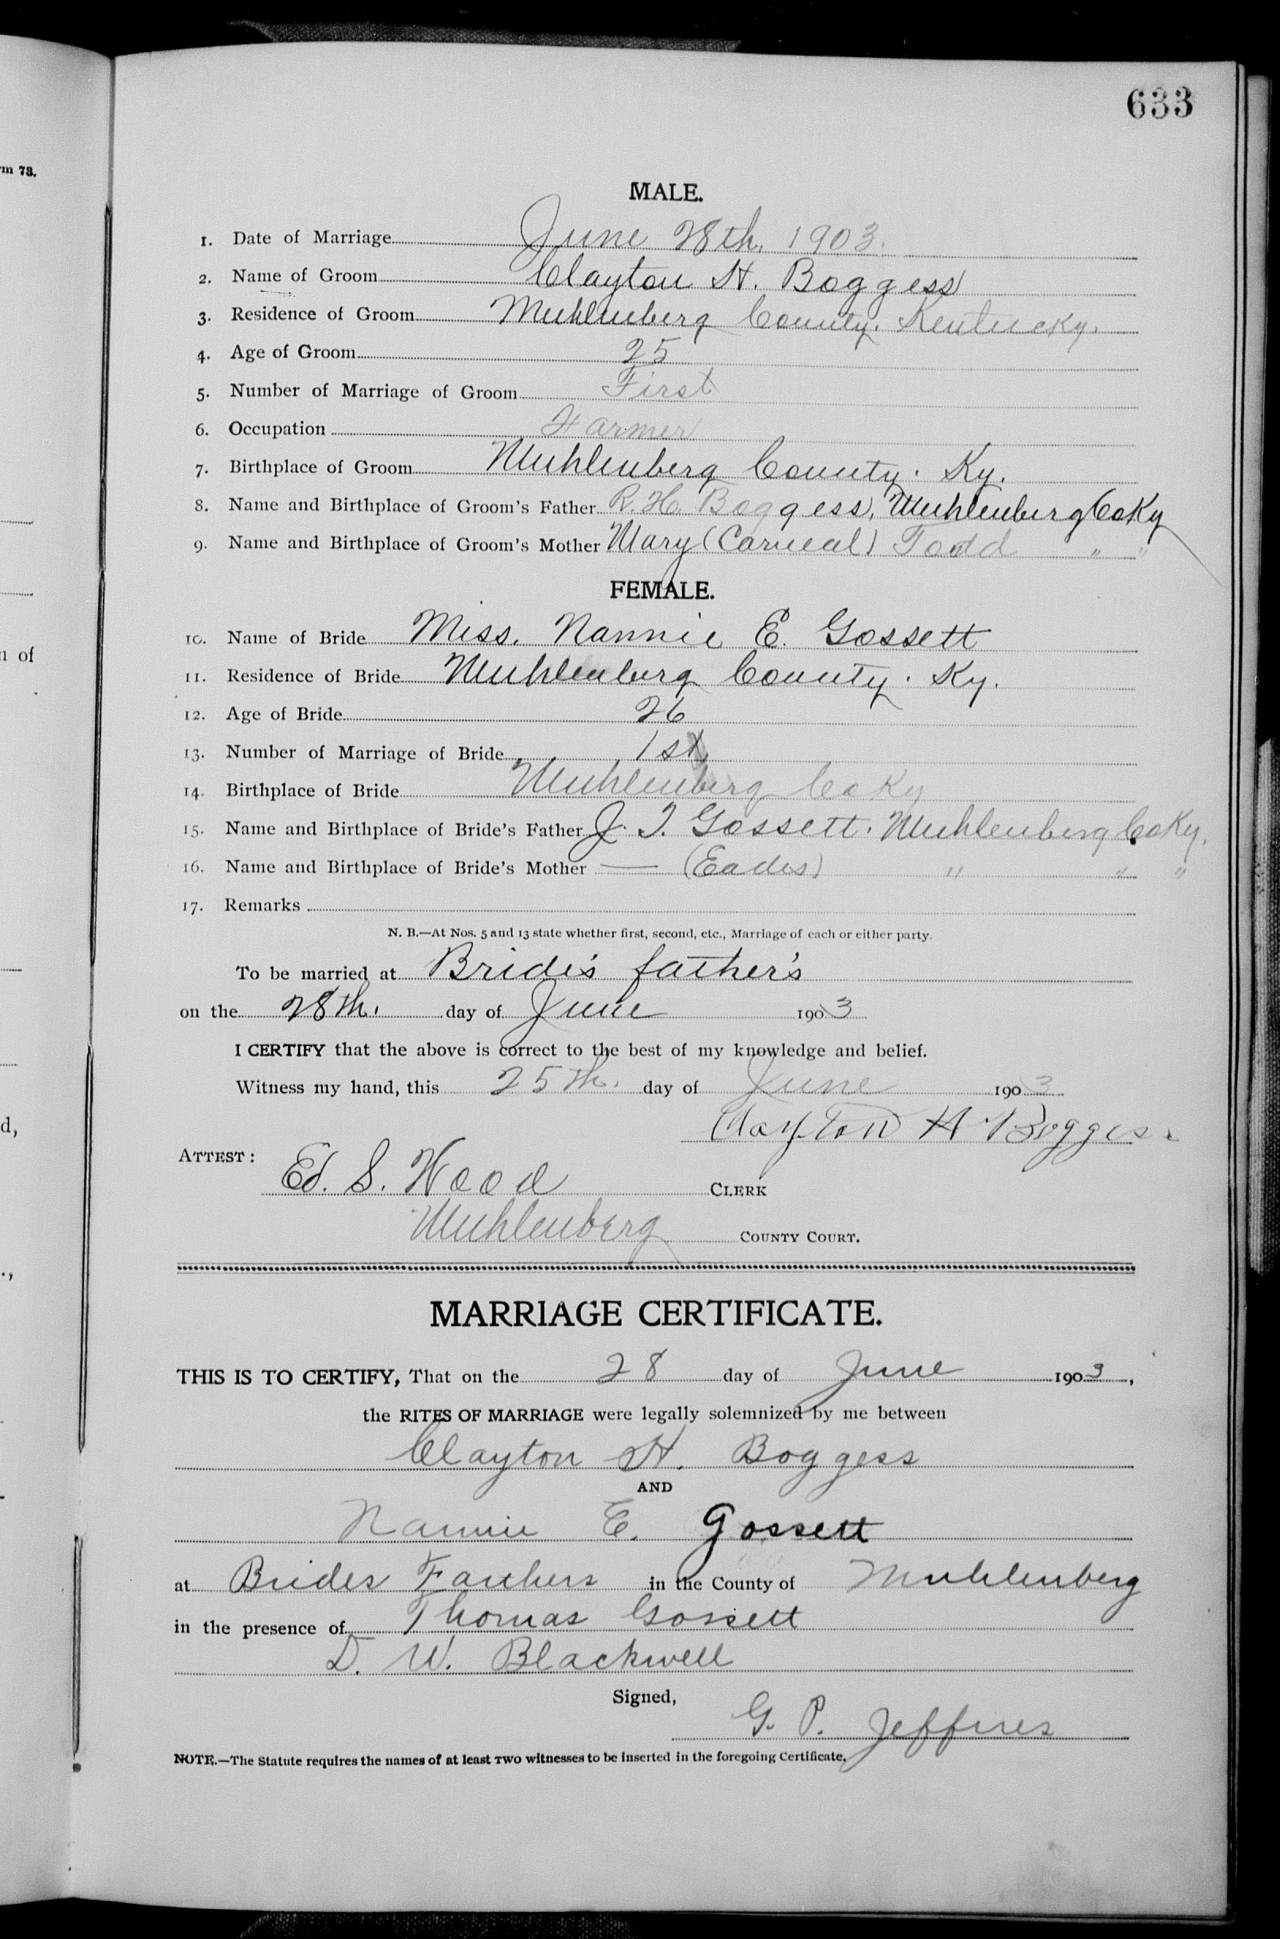 633
rm 73.
MALE.
1. Date of Marriage June 28th, 1903.
2. Name of Groom Clayton H. Boggess
3. Residence of Groom Muhlenberg County. Kentucky.
4. Age of Groom 25
5. Number of Marriage of Groom First
6. Occupation Farmer
7. Birthplace of Groom Muhlenberg County. Ky.
8. Name and Birthplace of Groom's Father R. H. Boggess, Muhlenberg Co Ky
9. Name and Birthplace of Groom's Mother Mary (Carneal) Todd " "
FEMALE.
10. Name of Bride Miss. Nannie E. Gossett
n of
11. Residence of Bride Muhlenberg County. Ky.
12. Age of Bride 26
13. Number of Marriage of Bride 1st
14. Birthplace of Bride Muhlenberg Co Ky
15. Name and Birthplace of Bride's Father J. T. Gossett. Muhlenberg Co Ky.
16. Name and Birthplace of Bride's Mother — (Eades) " " "
17. Remarks
N. B.—At Nos. 5 and 13 state whether first, second, etc., Marriage of each or either party.
To be married at Bride's father's
on the 28th. day of June 1903
I CERTIFY that the above is correct to the best of my knowledge and belief.
Witness my hand, this 25th. day of June 1903
d,
Clayton H Boggess
ATTEST: Ed. S. Wood CLERK
Muhlenberg COUNTY COURT.
MARRIAGE CERTIFICATE.
THIS IS TO CERTIFY, That on the 28 day of June 1903,
the RITES OF MARRIAGE were legally solemnized by me between
Clayton H. Boggess
AND
Nannie E. Gossett
at Brides Farthers in the County of Muhlenberg
in the presence of Thomas Gossett
D. W. Blackwell
Signed,
G. P. Jeffries
NOTE.—The Statute requires the names of at least TWO witnesses to be inserted in the foregoing Certificate.